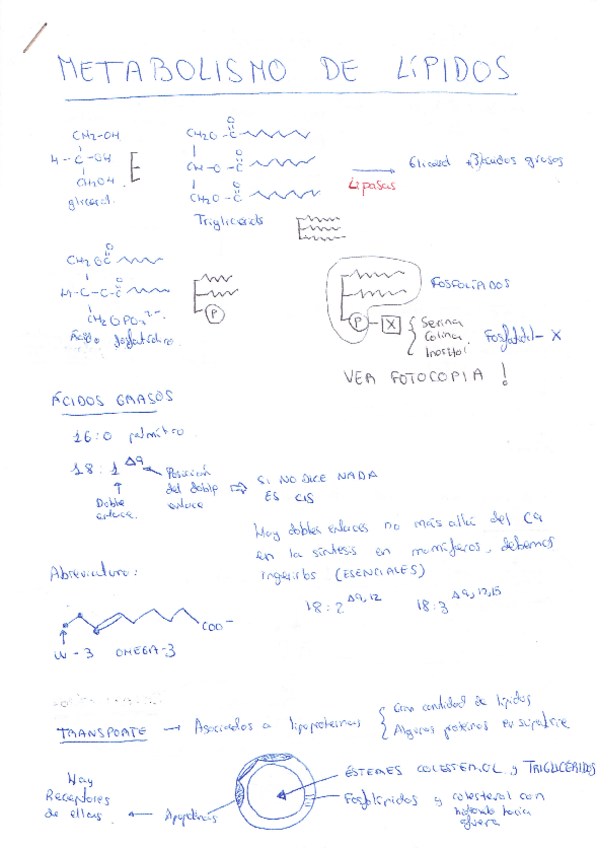 METABOLISMO DE LÍPIDOS
CH2-OH
H-C-OH
CH2OH
glicerol.
CH2O-C
O
CH-O-C
O
CH2O-C
O
Triglicérido
Lipasas
Glicerol + 3 ácidos grasos
CH2OC
O
H-C-C-C
O
CH2OPO3 2-
Ácido fosfatídico
P
P - X
Serina
Colina
Inositol
FOSFOLÍPIDOS
Fosfatidil-X
VER FOTOCOPIA!
ÁCIDOS GRASOS
16:0 palmítico
18:1 Δ9
Doble
enlace.
Posición
del doble
enlace
SI NO DICE NADA
ES CIS
Hay dobles enlaces no más allá del C9
en la síntesis en mamíferos, debemos
ingerirlos (ESENCIALES)
18:2 Δ9,12 18:3 Δ9,12,15
Abreviatura:
COO-
W-3 OMEGA-3
TRANSPORTE → Asociados a lipoproteínas
Gran cantidad de lípidos
Algunas proteínas en superficie
Hay
Receptores
de ellas
Apoproteínas
ÉSTERES COLESTEROL y TRIGLICÉRIDOS
Fosfolípidos y colesterol con
hacia
fuera